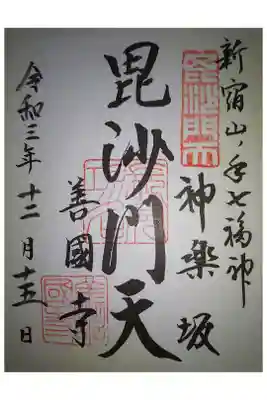 新宿山ノ手七福神
毘沙門天
神楽坂
毘沙門天
善國寺
令和三年十二月十五日